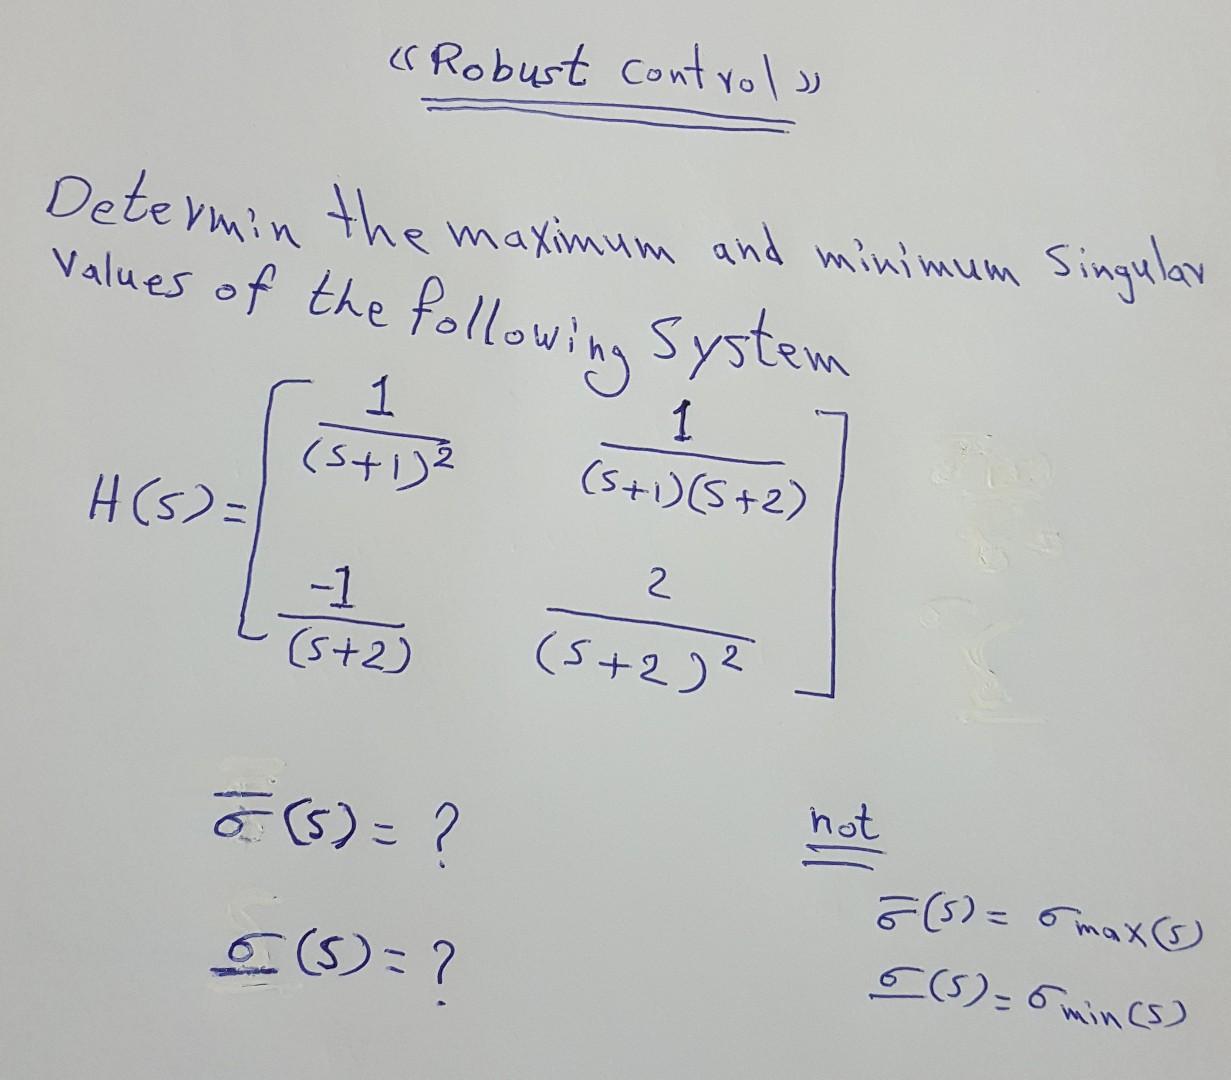 «Robust control»
Determin the maximum and minimum Singular
Values of the following System
H(S)= [ 1/(S+1)² 1/(S+1)(S+2)
-1/(S+2) 2/(S+2)² ]
σ̅(S)= ?
not
σ̅(S)= σmax(S)
σ̲(S)= ?
σ̲(S)= σmin(S)